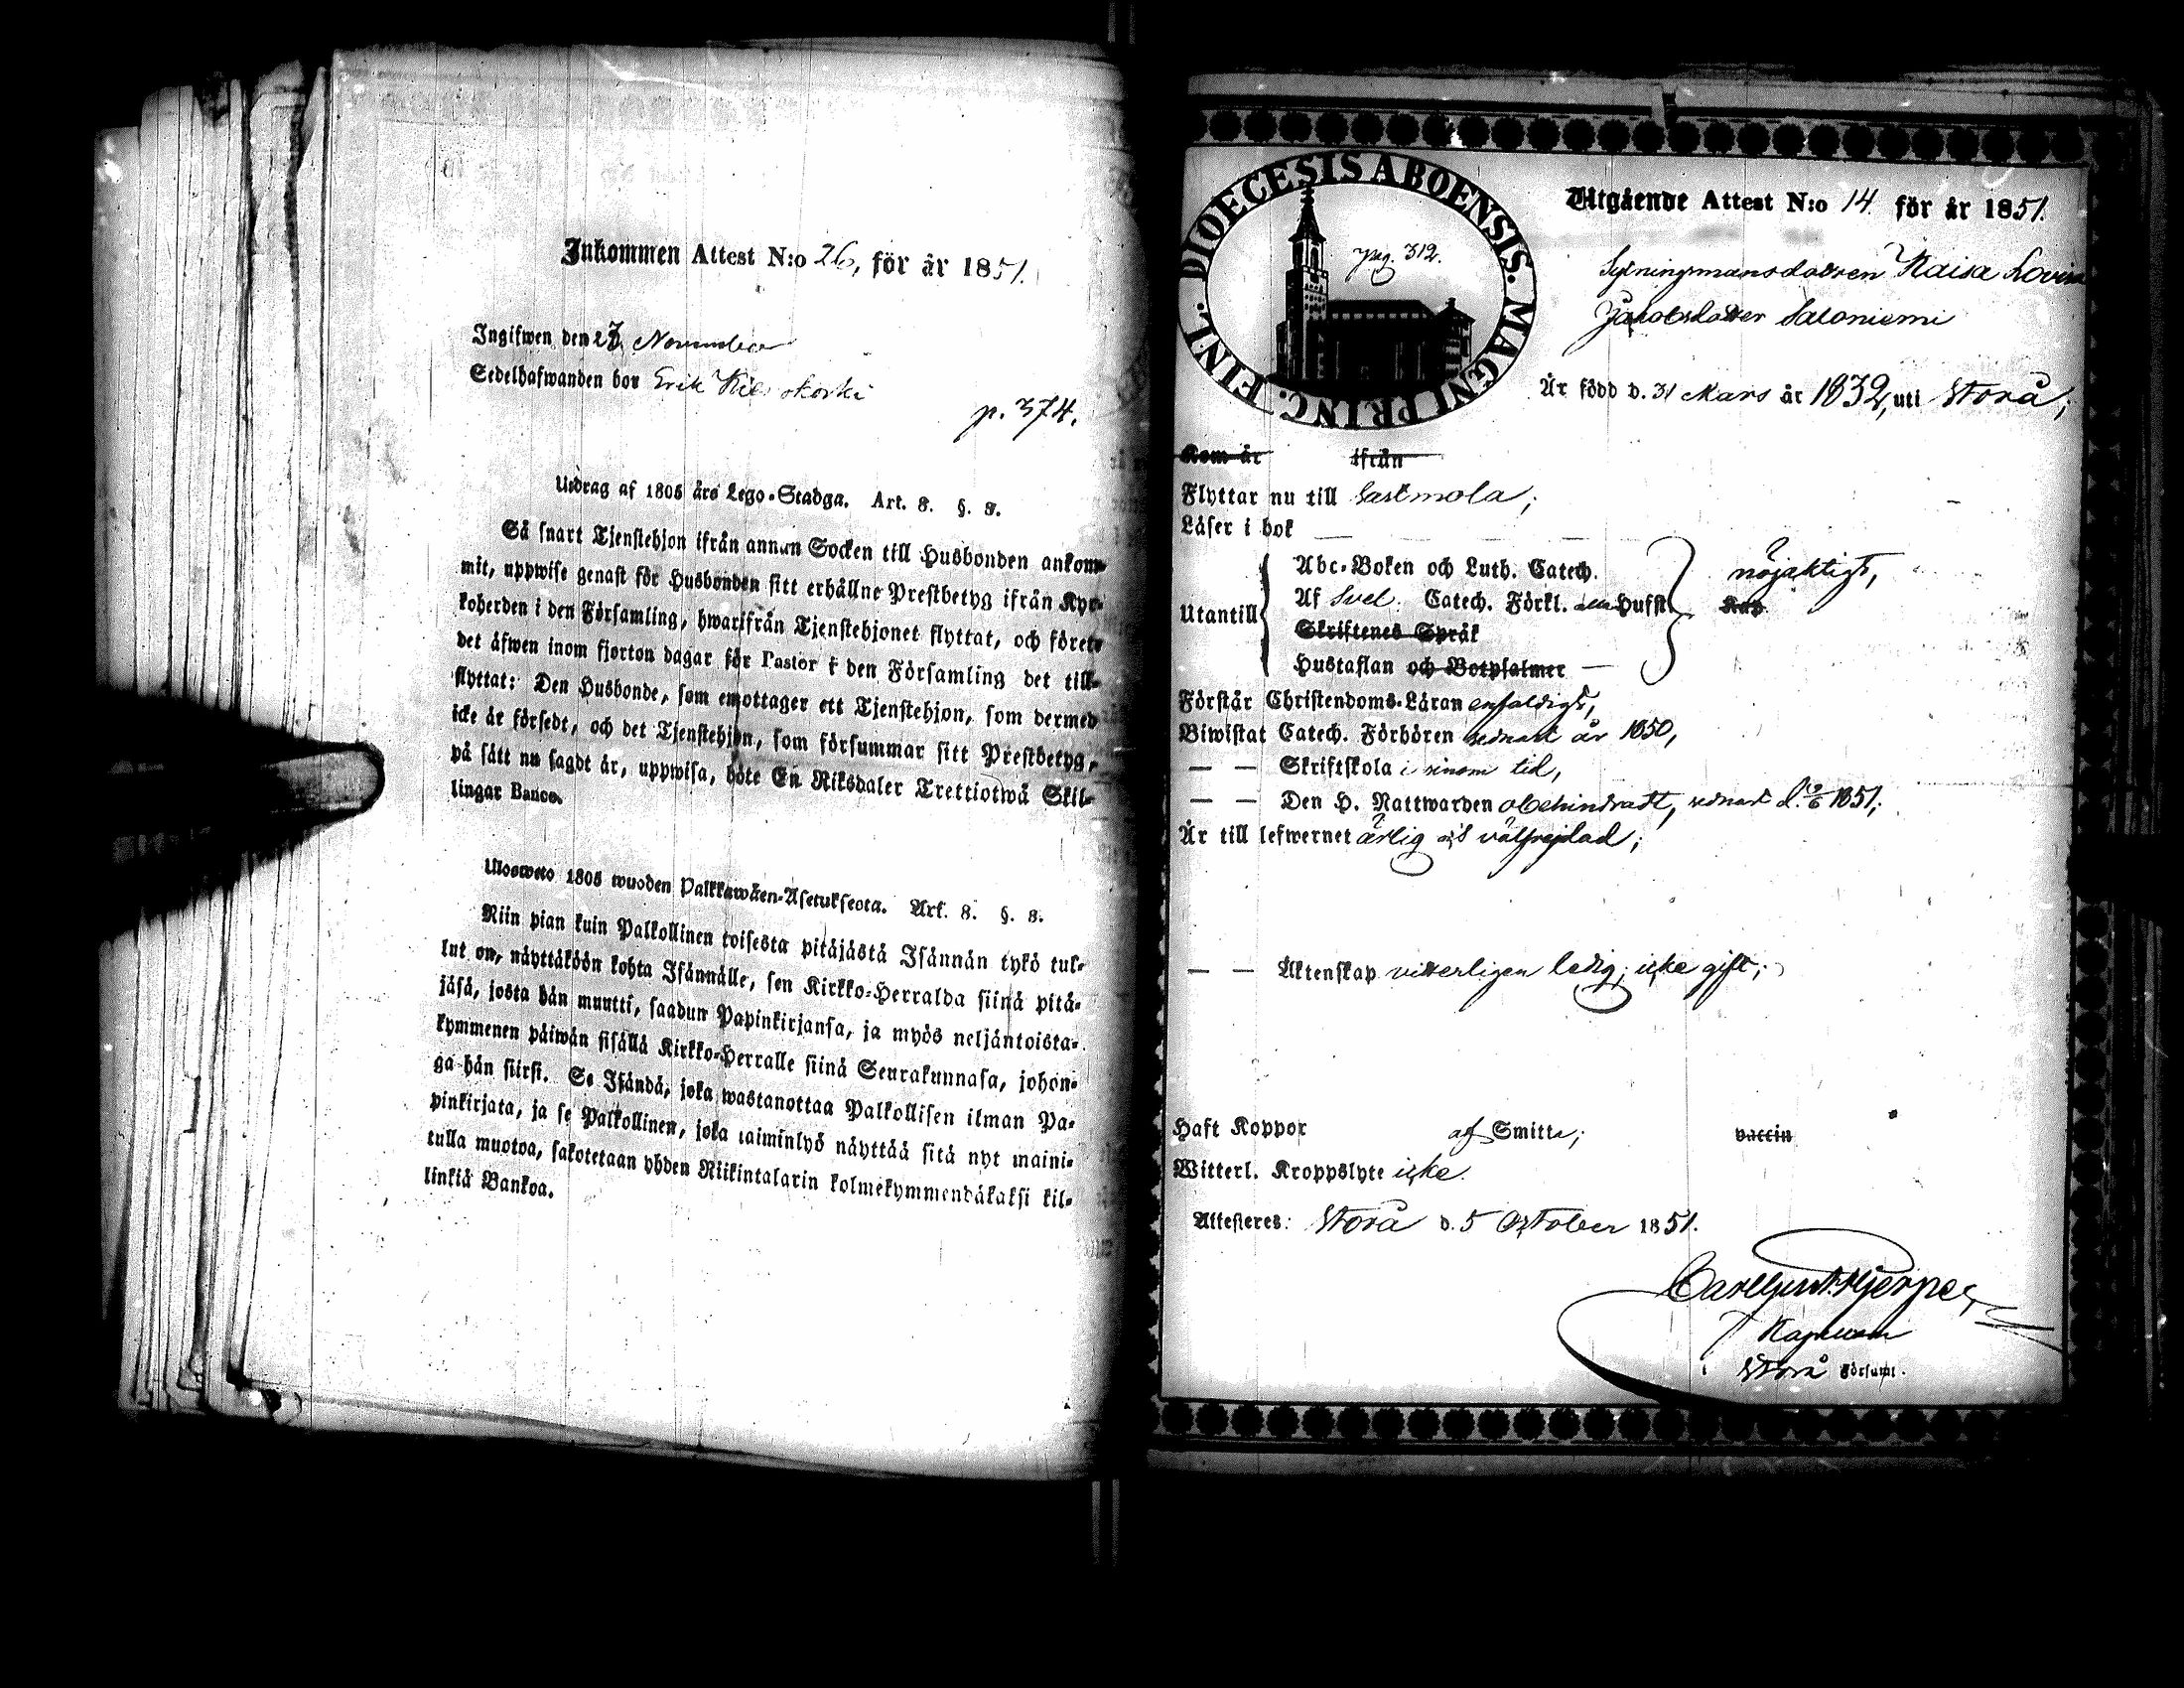 Inkommen Attest N:o 26, för år 1851.
Ingifwen den 23 November
Sedelhafwanden bor Erik
p. 374.
Utdrag af 1805 års Lego-Stadga. Art. 8. §. 8.
Så snart Tjenstehjon ifrån annan Socken till Husbonden ankom-
mit, uppwise genast för Husbonden sitt erhållne Prestbetyg ifrån Kyr-
koherden i den Församling, hwarifrån Tjenstehjonet flyttat, och förete
det äfwen inom fjorton dagar för Pastor i den Församling det till-
flyttat: Den Husbonde, som emottager ett Tjenstehjon, som dermed
icke är försedt, och det Tjenstehjon, som försummar sitt Prestbetyg,
på sätt nu sagdt är, uppwisa, böte En Riksdaler Trettiotwå Skil-
lingar Banco.
Ulosweto 1805 wuoden Palkkawäen-Asetuksesta. Art. 8. §. 8.
Niin pian kuin Palkollinen toisesta pitäjästä Isännän tykö tul-
lut on, näyttäköön kohta Isännälle, sen Kirkko-Herralda siinä pitä-
jäsä, josta hän muutti, saadun Papinkirjansa, ja myös neljäntoista-
kymmenen päiwän sisällä Kirkko-Herralle siinä Seurakunnasa, johon-
ga hän siirsi. Se Isändä, joka wastanottaa Palkollisen ilman Pa-
pinkirjata, ja se Palkollinen, joka laiminlyö näyttää sitä nyt maini-
tulla muotoa, sakotetaan yhden Riikintalarin kolmekymmendäkaksi kil-
linkiä Bankoa.
DIOECESIS ABOENSIS. MAGNI PRINC. FINL.
pag. 312.
Utgående Attest N:o 14 för år 1851.
Sytningsmansdottren Kaisa Lovisa
Jakobsdotter Saloniemi
Är född d. 31 Mars år 1832, uti Storå;
Kom år ifrån
Flyttar nu till Sastmola;
Läser i bok
Utantill
Abc-Boken och Luth. Catech.
Af Svel. Catech. Förkl. Husst
Skriftenes Språk
Hustaflan och Botpsalmer
nöjaktigt,
Förstår Christendoms-Läran enfaldigt,
Biwistat Catech. Förhören sednast år 1850,
— — Skriftskola i sinom tid,
— — Den H. Nattwarden obehindradt, sednast d. 1851;
Är till lefwernet ärlig och välfrejdad;
— — Äktenskap vitterligen ledig; icke gift;
Haft Koppor af Smitta; vaccin
Witterl. Kroppslyte icke.
Attesteres: Storå d. 5 October 1851.
Carl Gust. Hjerpe
Kapellan
Storå Församl.